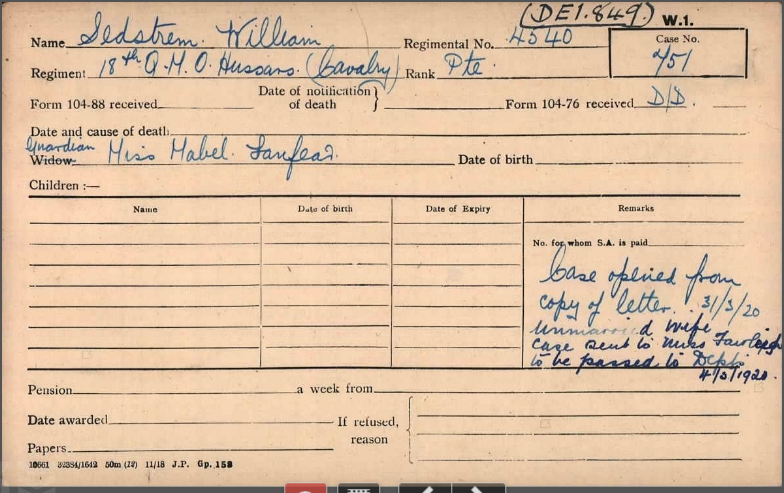 (DE1.849) W.1.
Name Sedstrem. William Regimental No. 4540 Case No.
Regiment 18th Q.M.O. Hussars. (Cavalry) Rank Pte. 751
Form 104-88 received Date of notification of death } Form 104-76 received D/D.
Date and cause of death
Guardian
Widow Miss Mabel. Date of birth
Children :—
Name Date of birth Date of Expiry Remarks
No. for whom S.A. is paid
Case opened from
copy of letter. 31/3/20
Unmarried wife
case sent to Miss
to be passed to Deptl
1920.
Pension a week from
Date awarded If refused,
reason
Papers
32384/1642 50m (12) 11/18 J.P. Gp. 158